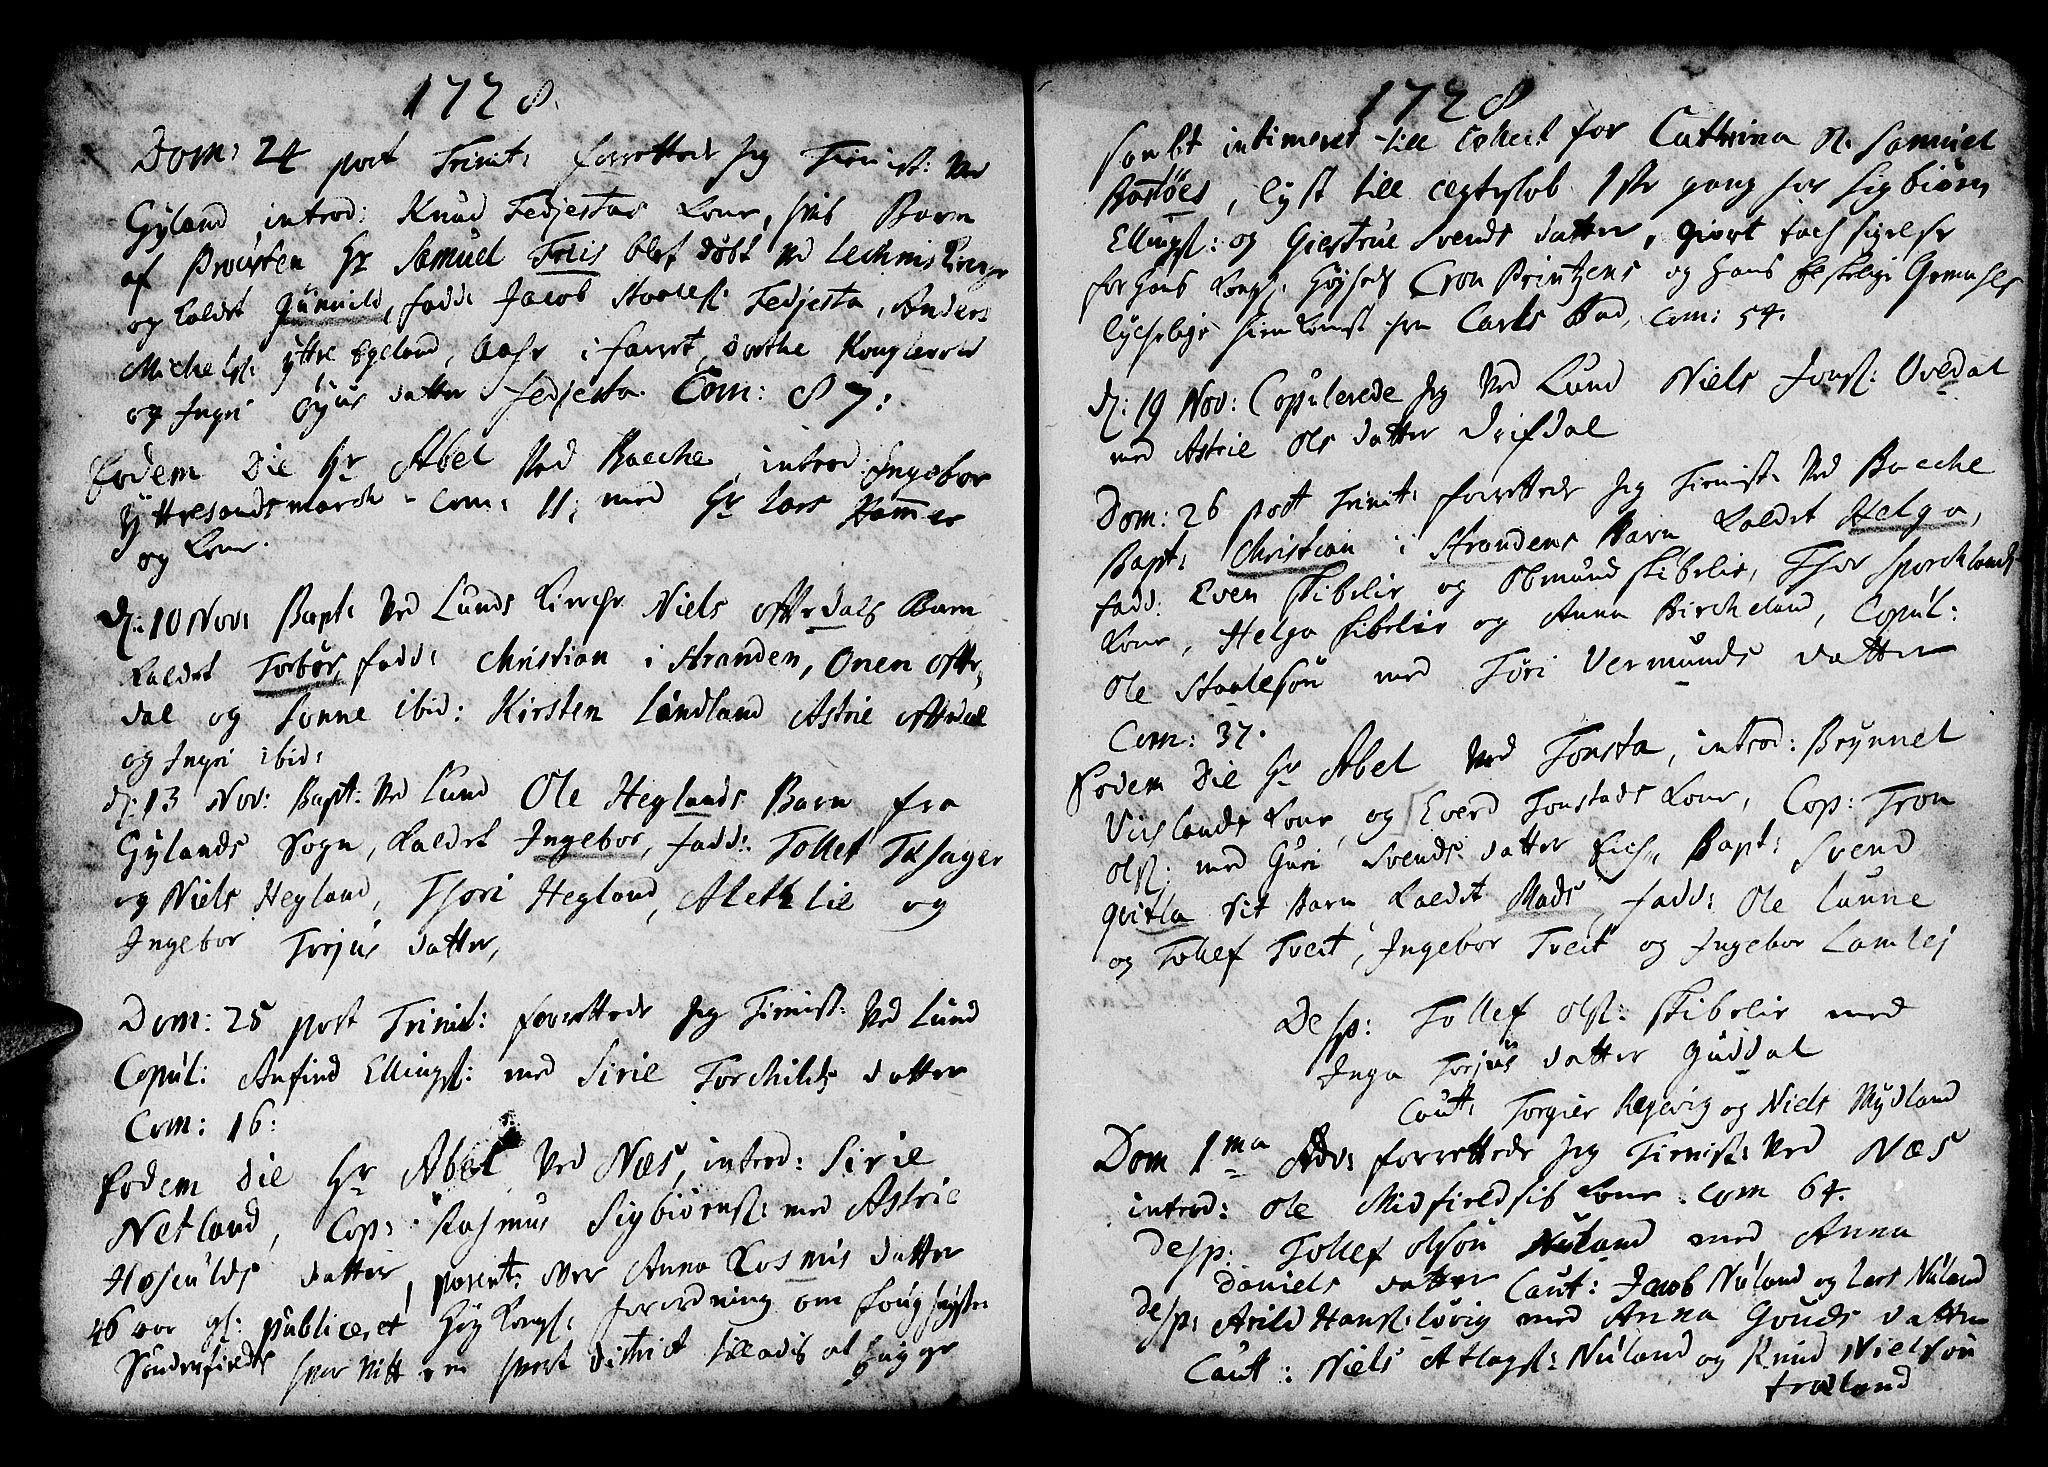 1728.
Dom: 24 post Trinit: forrettede Jeg Tienist: ved
Gyland, introd: Knud Fedjestas Kone, hvis Barn
af Provsten Hr Samuel Friis blef døbt ved Lechnis Kirche
og kaldet Gunvild, fadd: Jacob Staalesl: Fedjesta, Anders
Michelsl: yttre Egeland, Aase i farret, dorthe Konglevold
og Ingri Øyus datter Fedjesta. Com: 87:
Eodem Die Hr Abel ved Bacche, introd: Ingebor
yttresandsmarch - com: 11, med Hr Lars Hammer
og Kone.
d: 10 Nov: Bapt: ved Lunds Kirche Niels Ofttedals Barn
kaldet Torbør, fadd: Christian i Stranden, Onen Ofte,
dal og Sønne ibid: Kirsten Landland Astrie
og Ingri ibid:
d: 13 Nov: Bapt: ved Lund Ole Heglands Barn fra
Gylands Sogn, kaldet Ingebor, fadd: Tollef
og Niels Hegland, Thori Hegland, Aleth Lie og
Ingebor Torjus datter,
Dom: 25 post Trinit: forrettede Jeg Tienist: ved Lund
Copul: Anfind Ellingsl: med Sirie Torchilds datter
Com: 16:
Eodem Die Hr Abel ved Næs, introd: Sirie
Netland, Cop: Rasmus Sigbiørnsl: med Astrie
Hoschulds datter, parent: over Anna Rasmis datter
46 aar gl: publiceret Høy Kongl: forordning om
Søndenfields hvor vitt en hvert district tilladis at
1728
samt intimeret till Collect for Cathrina Sl. Samuel
, lyst till ægteskab 1ste gang for Sigbiørn
Ellingsl: og Giertrue Svends datter, giort tachsigelse
for Hans Kongl: Høyheds Cron Printzens og Hans Gemahls
lychelige hiemkomst fra Carls Bad, com: 54.
d: 19 Nov: Copulerede Jeg ved Lund Niels Jonsl: Ovedal
med Astrie Ols datter Drifdal
Dom: 26 post Trinit: forrettede Jeg Tienist: ved Bacche
Bapt: Christian i Strandens Barn kaldet Helga,
fadd: Even Skibelie og Osmund Skibelie, Thor Sporchlands
Kone, Helga Skibelie og Anna Bircheland, Copul:
Ole Staaleson med Tøri Vermunds datter
Com: 37.
Eodem Die Hr Abel ved Tonsta, introd: Brynnel
Virlands Kone, og Everd Tonstads Kone, Cop: Tron
Olsl: med Guri Svends datter Eich, Bapt: Svend
Qvitla sit Barn kaldet Mads, fadd: Ole Lunne
og Tollef Tveit, Ingebor Tveit og Ingebor Lamlej
Desp: Tollef Olsl: Skibelie med
Inga Torjus datter Guddal
Caut: Torgier Regevig og Niels Mydland
Dom 1ma Adv: forrettede Jeg Tienist: ved Næs
introd: Ole Midfields Kone. com 64.
Desp: Tollef Olson Nuland med Anna
Daniels datter Caut: Jacob Nuland og Lars Nuland
Desp: Arild Hansl: Løvig med Anna Gouds datter
Caut: Niels Atlagsl: Nuland og Knud Nielson
træland